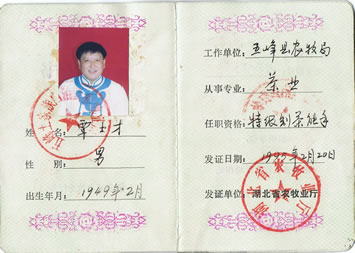 姓 名: 覃士才
性 别: 男
出生年月: 1949年2月
工作单位: 五峰县农牧局
从事专业: 茶业
任职资格: 特级制茶能手
发证日期: 年2月20日
发证单位: 湖北省农牧业厅
湖北省农牧业厅